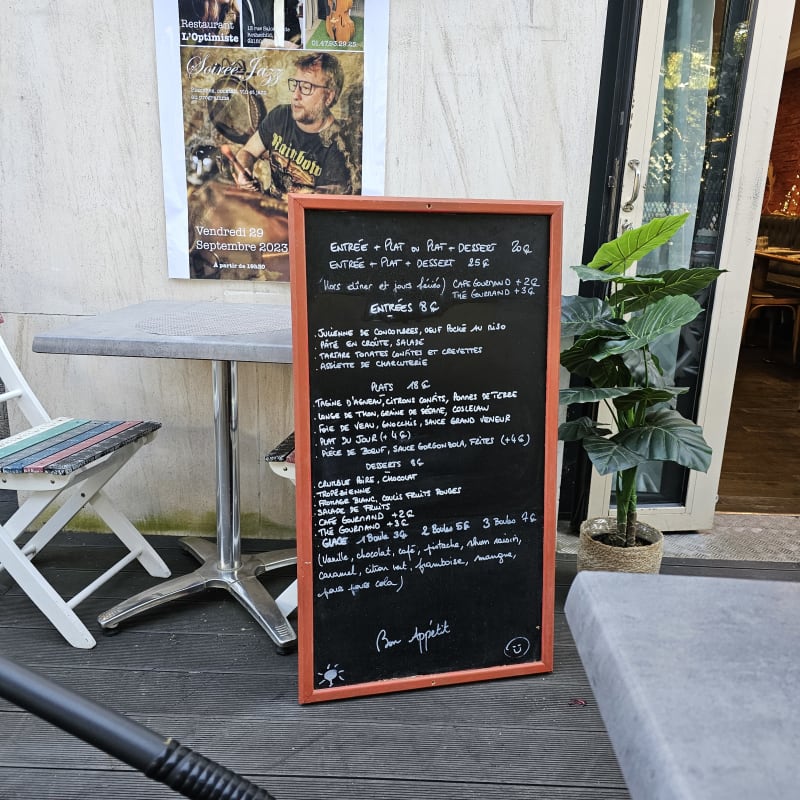 Restaurant
L'Optimiste
01.47.93.29.25
Soirée Jazz
Planches, cocktail, vin et jazz
au programme
Rainbow
Vendredi 29
Septembre 2023
À partir de 19h30
ENTRÉE + PLAT OU PLAT + DESSERT 20€
ENTRÉE + PLAT + DESSERT 25€
(Hors dîner et jours fériés) CAFÉ GOURMAND + 2€
THÉ GOURMAND + 3€
ENTRÉES 8€
. JULIENNE DE CONCOMBRES, OEUF POCHÉ AU MISO
. PÂTÉ EN CROÛTE, SALADE
. TARTARE TOMATES CONFITES ET CREVETTES
. ASSIETTE DE CHARCUTERIE
PLATS 18€
. TAGINE D'AGNEAU, CITRONS CONFITS, POMMES DE TERRE
. LONGE DE THON, GRAINE DE SÉSAME, COSLELAW
. FOIE DE VEAU, GNOCCHIS, SAUCE GRAND VENEUR
. PLAT DU JOUR (+ 4€)
. PIÈCE DE BOEUF, SAUCE GORGONZOLA, FRITES (+4€)
DESSERTS 8€
. CRUMBLE POIRE, CHOCOLAT
. TROPÉZIENNE
. FROMAGE BLANC, COULIS FRUITS ROUGES
. SALADE DE FRUITS
. CAFÉ GOURMAND + 2€
. THÉ GOURMAND + 3€
. GLACE 1 Boule 3€ 2 Boules 5€ 3 Boules 7€
(Vanille, chocolat, café, pistache, rhum raisin,
caramel, citron vert, framboise, mangue,
cola)
Bon Appétit